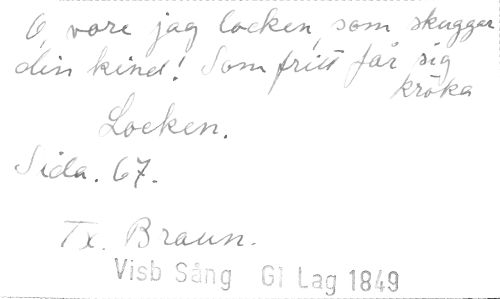 O, vore jag locken, som skuggar
din kind! Som fritt får sig
kröka
Locken.
Sida. 67.
Tx. Braun.
Visb Sång Gl Lag 1849